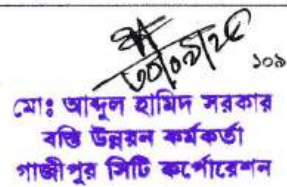 ৩০/০৯/২৫
১০৯
মোঃ আব্দুল হামিদ সরকার
বস্তি উন্নয়ন কর্মকর্তা
গাজীপুর সিটি কর্পোরেশন